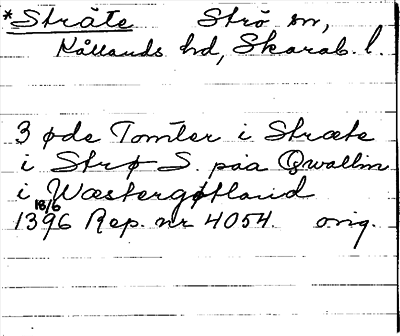 *Stråte Strö sn,
Kållands hd, Skarab. l.
3 øde Tomter i Stræte
i Strø S. paa Qwallin
i Wæstergøtland
18/6
1396 Rep. nr 4054. orig.